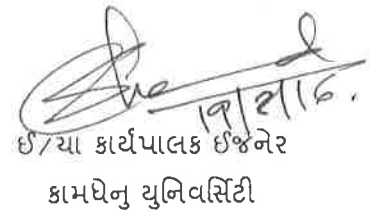 ઈ/ચા કાર્યપાલક ઈજનેર
કામધેનુ યુનિવર્સિટી